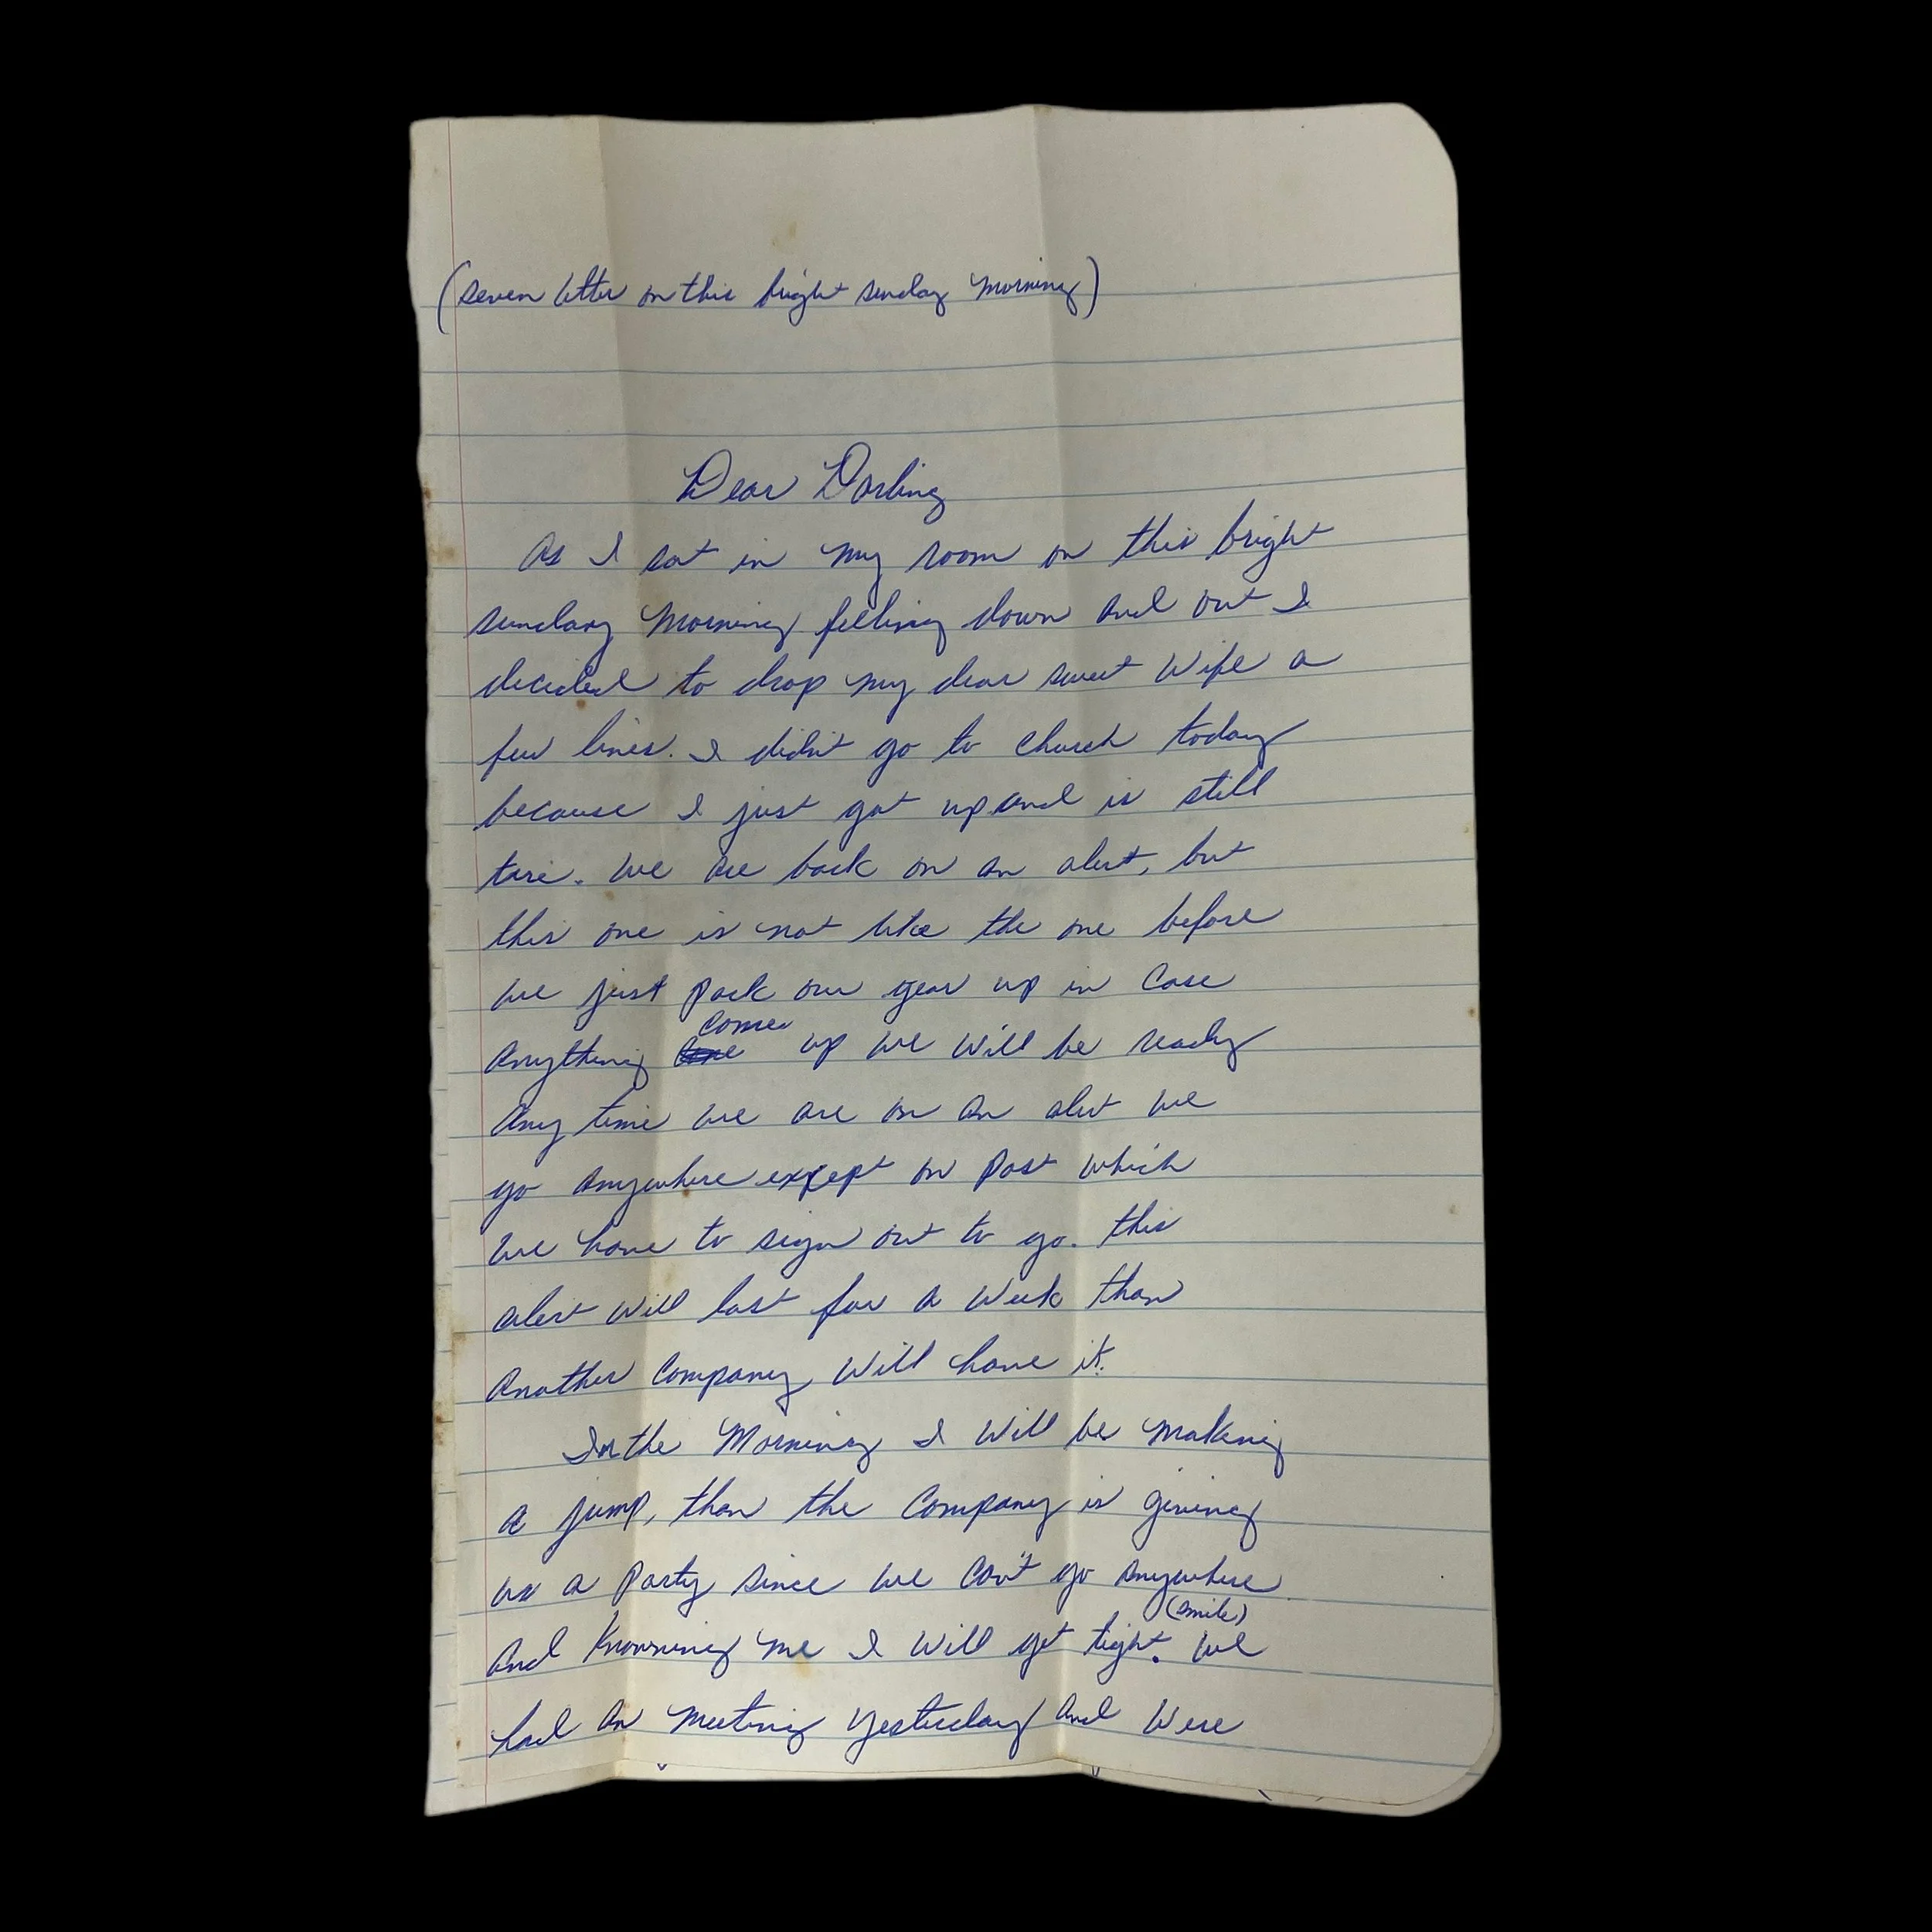 (seven letter on this bright sunday morning)
Dear Darling
As I sat in my room on this bright
sunday morning felling down and out I
decided to drop my dear sweet Wife a
few lines. I didn't go to church today
because I just got up and is still
tire. We are back on an alert, but
this one is not like the one before
we just pack our gear up in Case
anything come up we will be ready
any time we are on an alert we
go anywhere except on Post which
we have to sign out to go. this
alert will last for a week than
another Company Will have it.
In the Morning I Will be making
a jump, than the Company is giving
us a Party since we can't go anywhere
(smile)
and Knowning me I Will get tight. We
had an meeting yesterday and Were